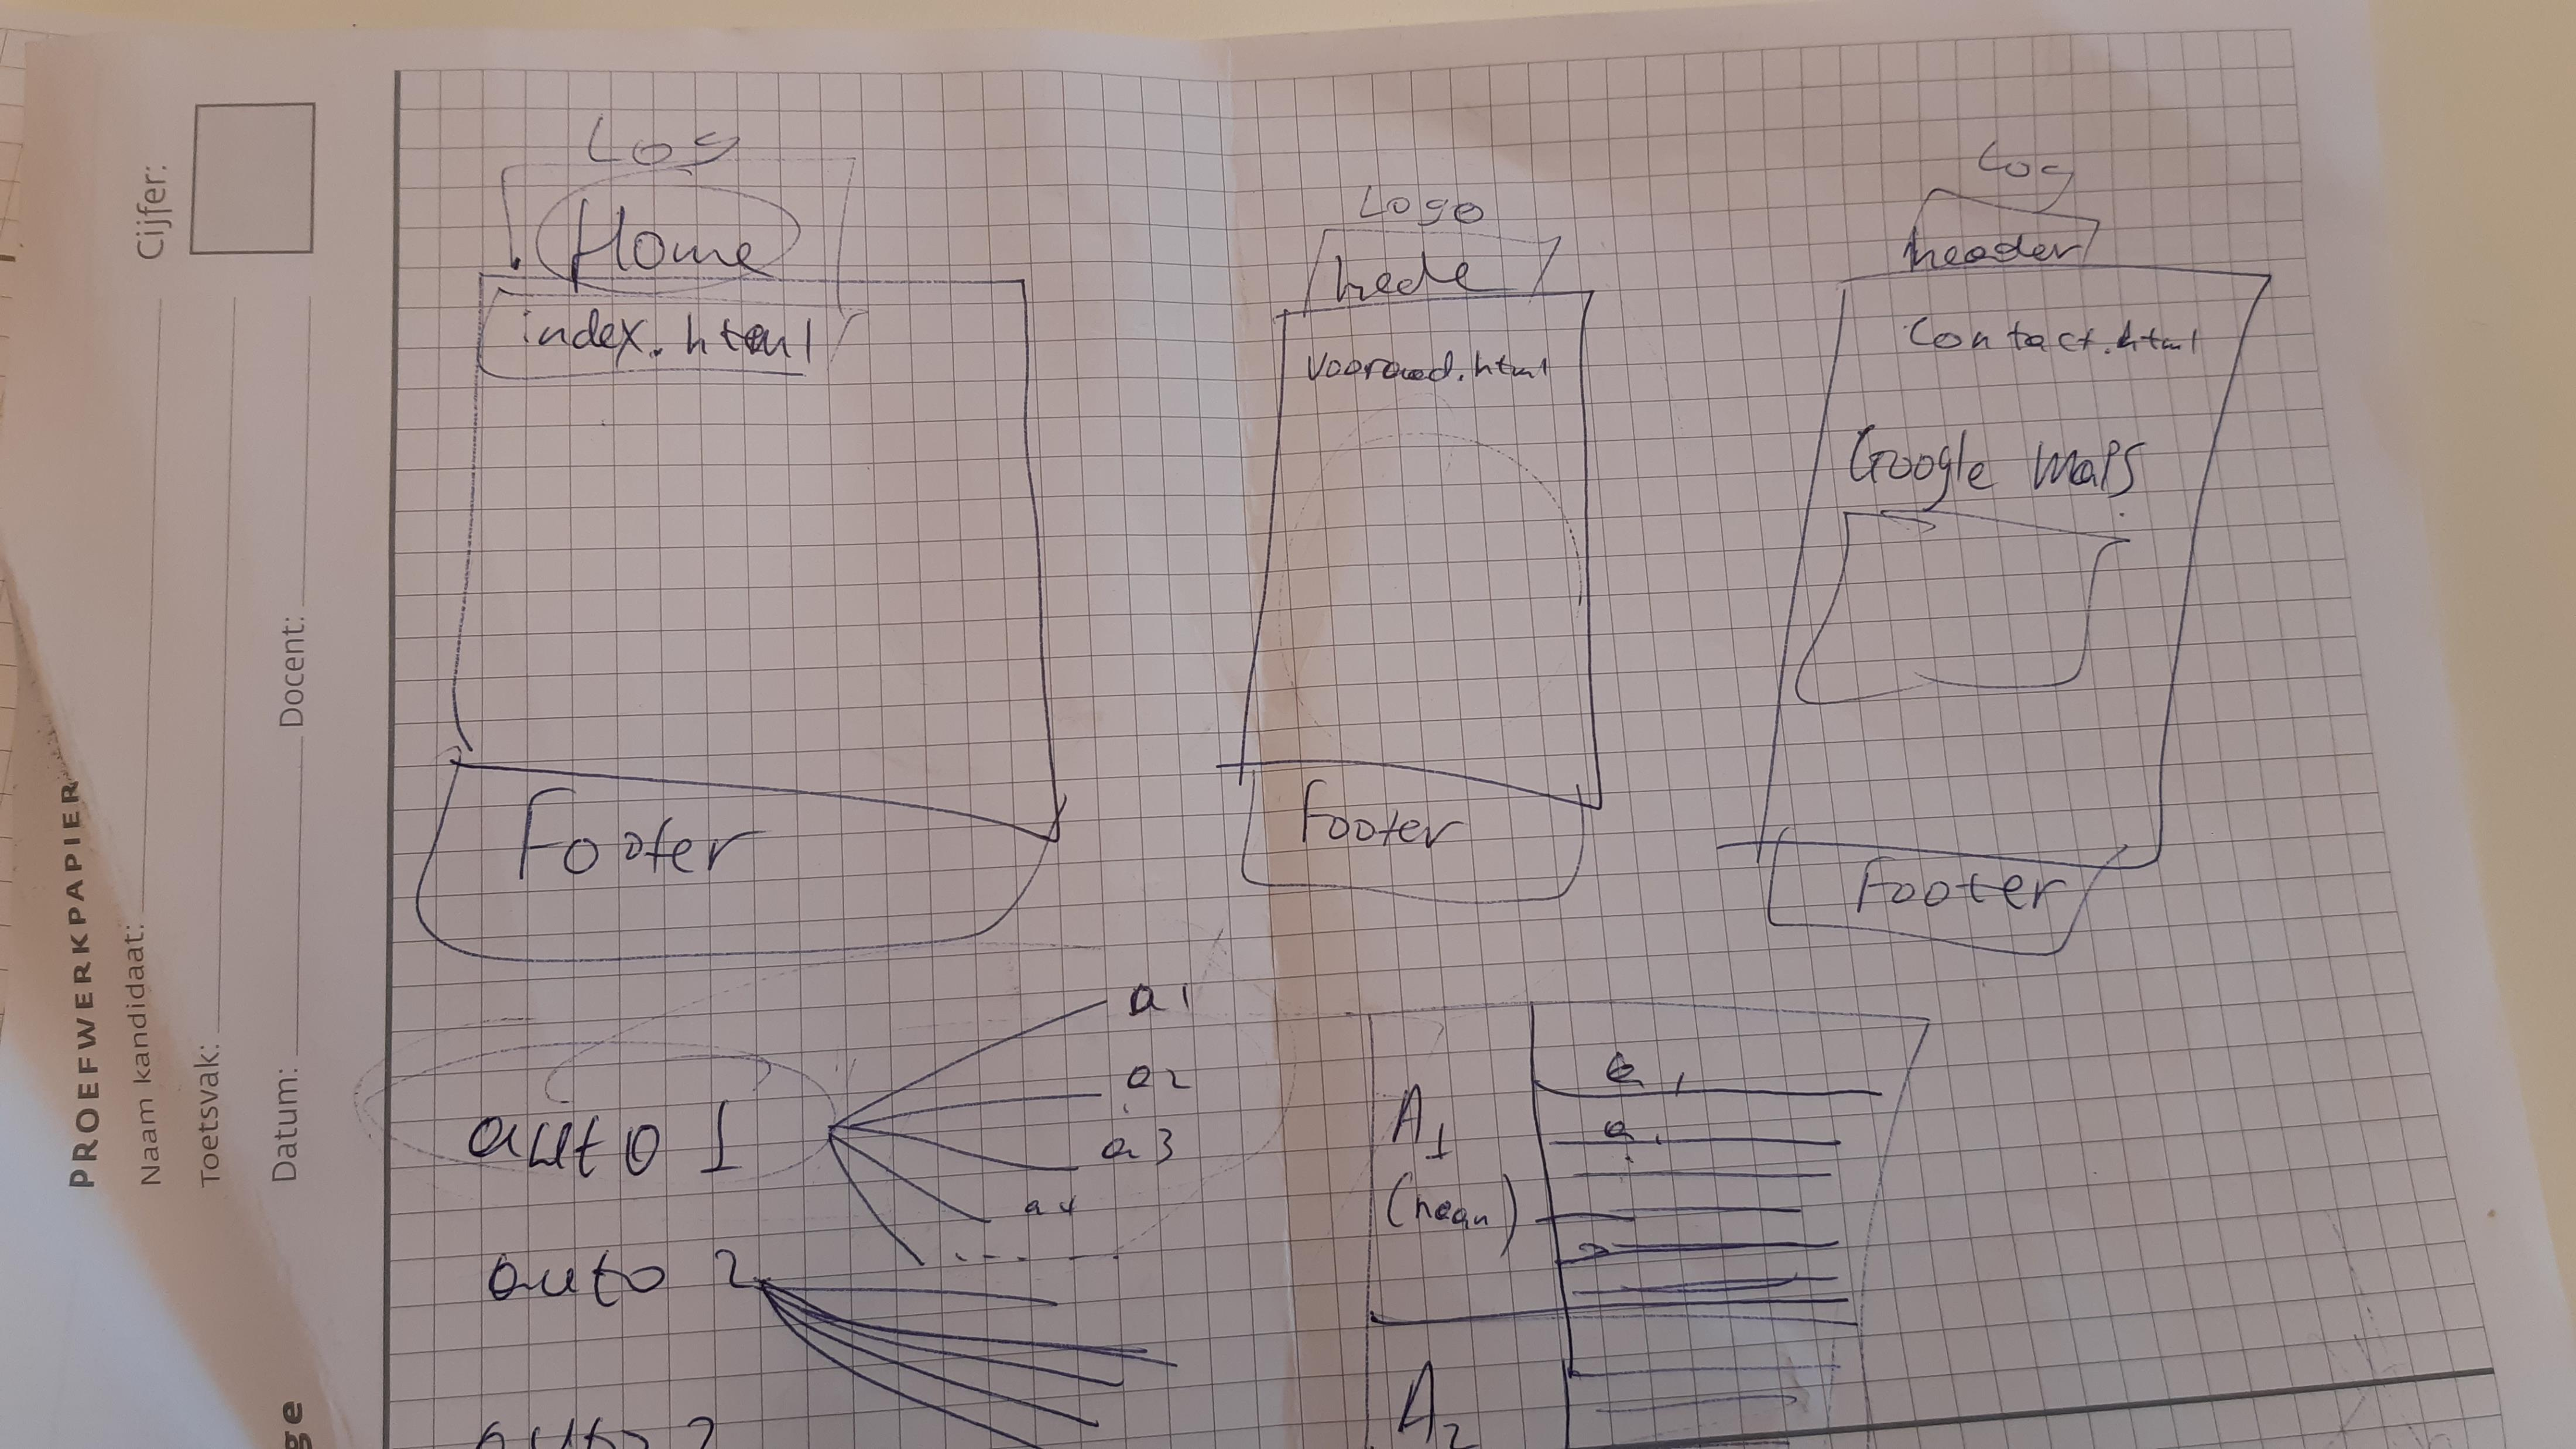 PROEFWERKPAPIER
Naam kandidaat:
Toetsvak:
Datum:
Docent:
Cijfer:
Log
Home
index.html
Footer
Logo
hede
Vooraad.html
Footer
Log
header
Contact.html
Google maps
Footer
auto 1
a1
a2
a3
a4
auto 2
A1
a,
a.
A2
ge